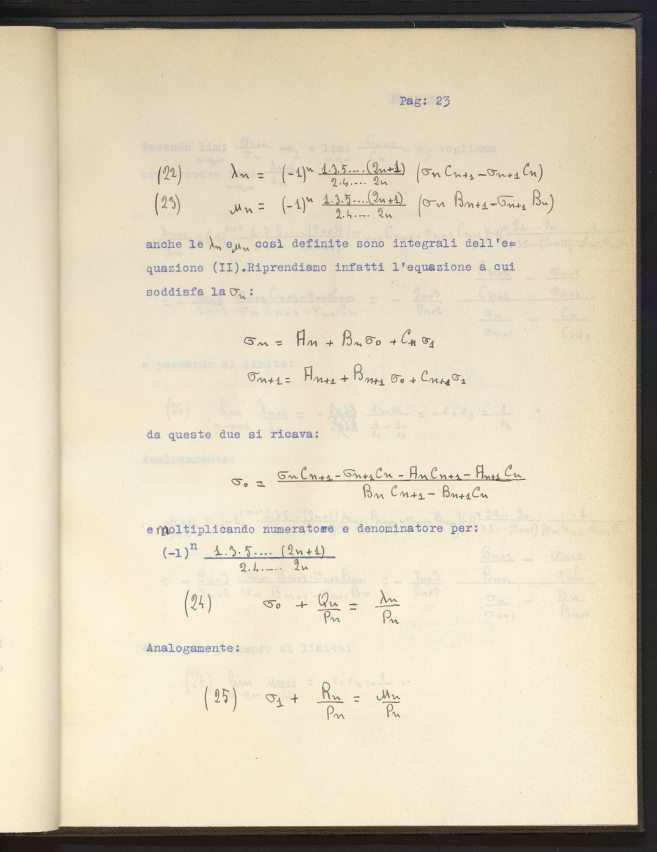 Pag: 23
(22) λn = (-1)^n 1.3.5....(2n+1) / 2.4.... 2n (σn Cn+1 - σn+1 Cn)
(23) μn = (-1)^n 1.3.5....(2n+1) / 2.4.... 2n (σn Bn+1 - σn+1 Bn)
anche le λn e μn così definite sono integrali dell'e=
quazione (II).Riprendiamo infatti l'equazione a cui
soddisfa la σn:
σn = An + Bn σ0 + Cn σ1
σn+1 = An+1 + Bn+1 σ0 + Cn+1 σ1
da queste due si ricava:
σ0 = σn Cn+1 - σn+1 Cn - An Cn+1 - An+1 Cn / Bn Cn+1 - Bn+1 Cn
e moltiplicando numeratore e denominatore per:
(-1)^n 1.3.5.... (2n+1) / 2.4..... 2n
(24) σ0 + Qn/Pn = λn/Pn
Analogamente:
(25) σ1 + Rn/Pn = μn/Pn